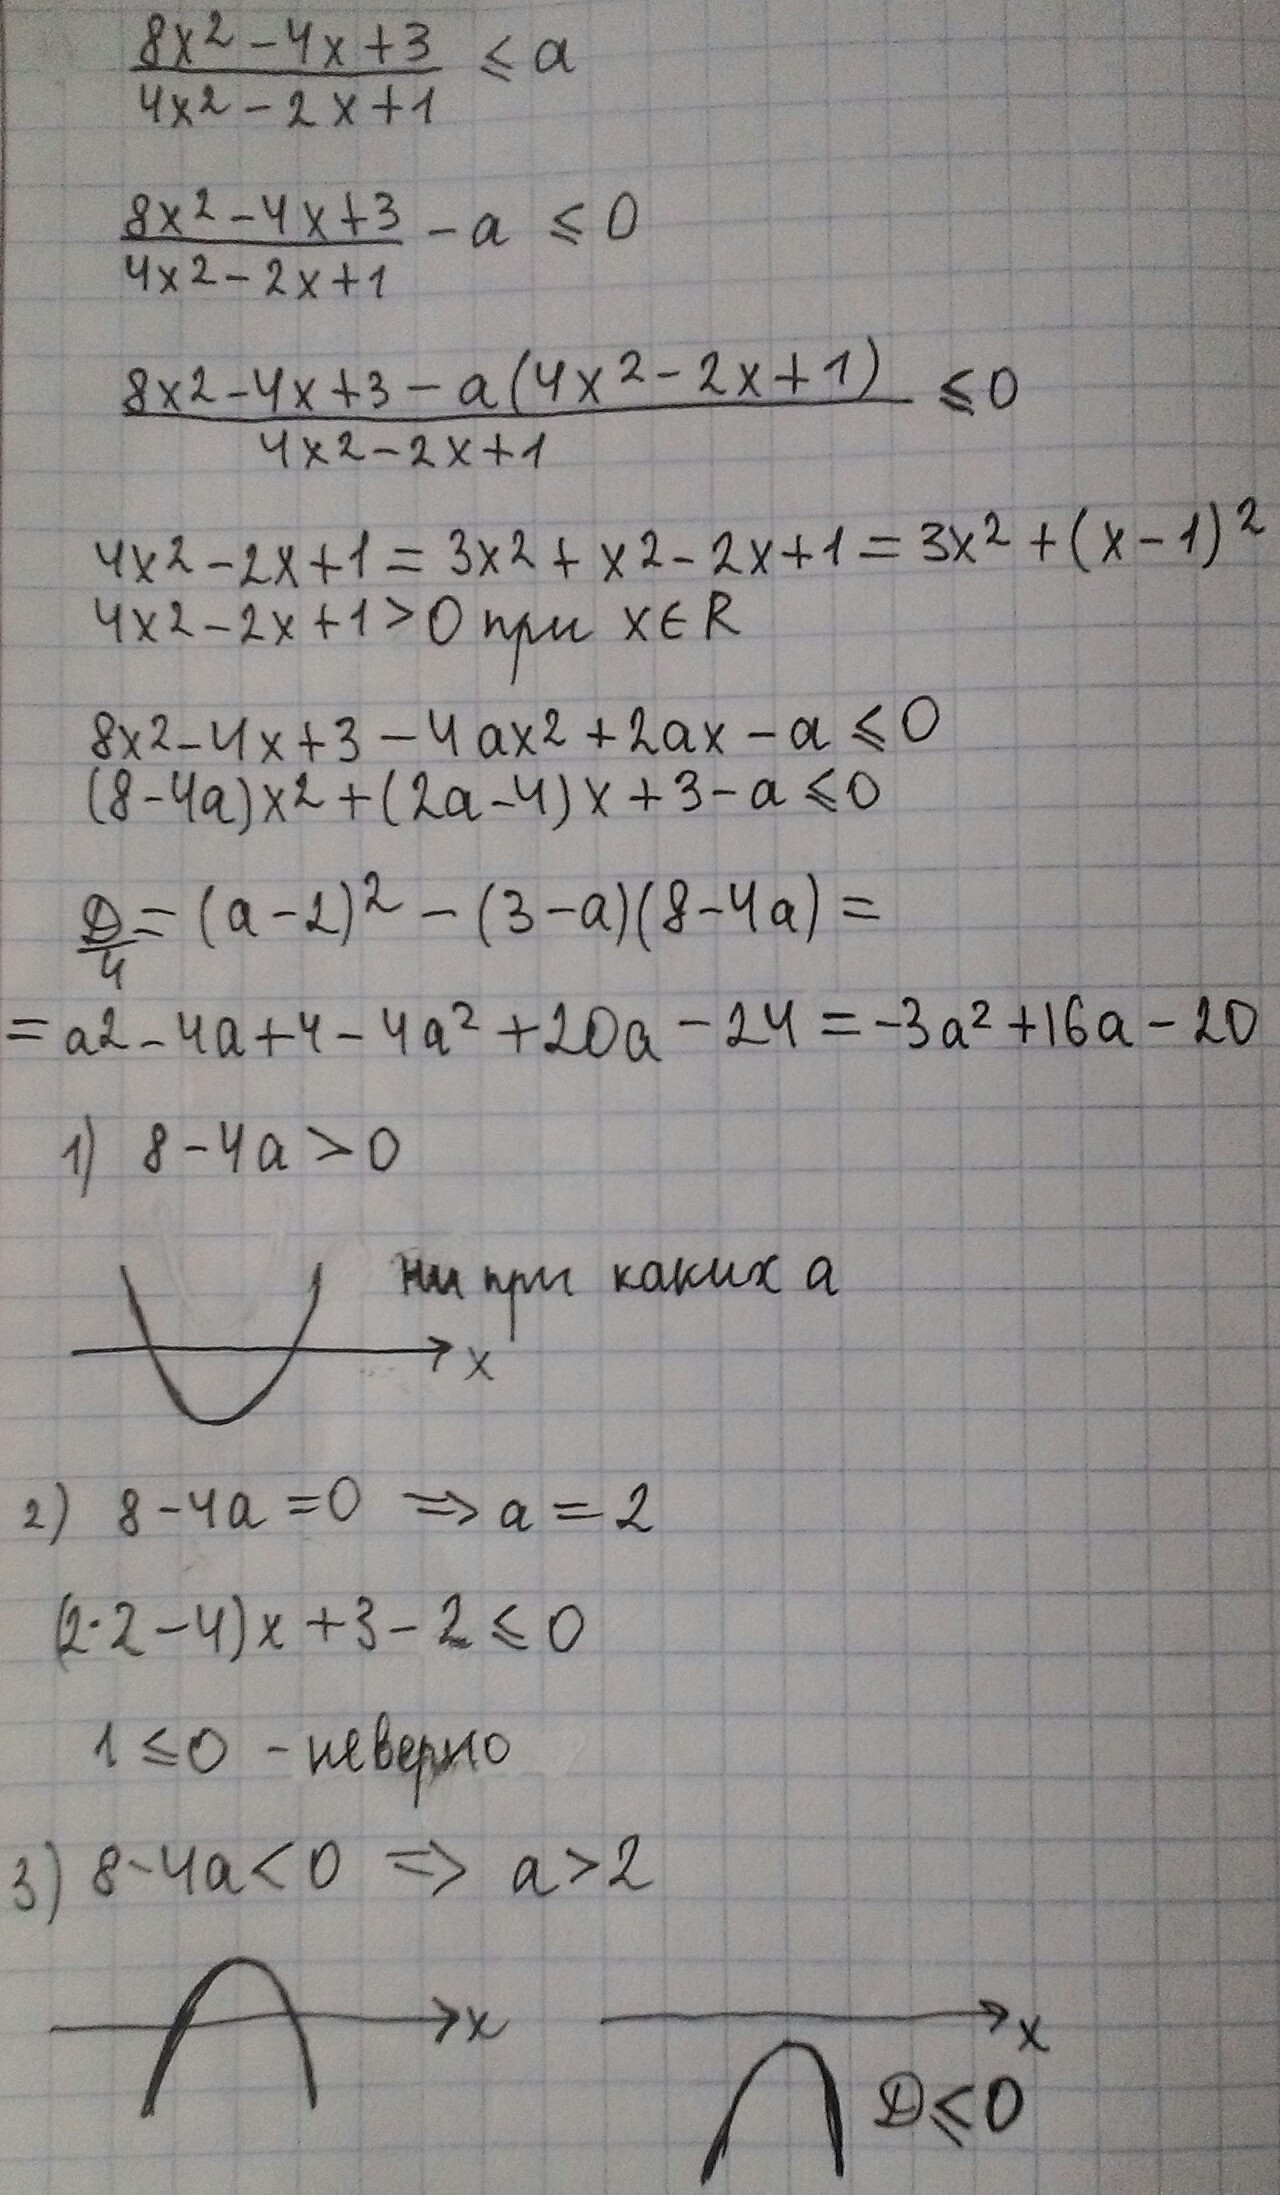 8x² - 4x + 3 / 4x² - 2x + 1 ≤ a
8x² - 4x + 3 / 4x² - 2x + 1 - a ≤ 0
8x² - 4x + 3 - a(4x² - 2x + 1) / 4x² - 2x + 1 ≤ 0
4x² - 2x + 1 = 3x² + x² - 2x + 1 = 3x² + (x - 1)²
4x² - 2x + 1 > 0 при x ∈ R
8x² - 4x + 3 - 4ax² + 2ax - a ≤ 0
(8 - 4a)x² + (2a - 4)x + 3 - a ≤ 0
D/4 = (a - 2)² - (3 - a)(8 - 4a) =
= a² - 4a + 4 - 4a² + 20a - 24 = -3a² + 16a - 20
1) 8 - 4a > 0
ни при каких a
x
2) 8 - 4a = 0 ⇒ a = 2
(2·2 - 4)x + 3 - 2 ≤ 0
1 ≤ 0 - неверно
3) 8 - 4a < 0 ⇒ a > 2
x x
D ≤ 0